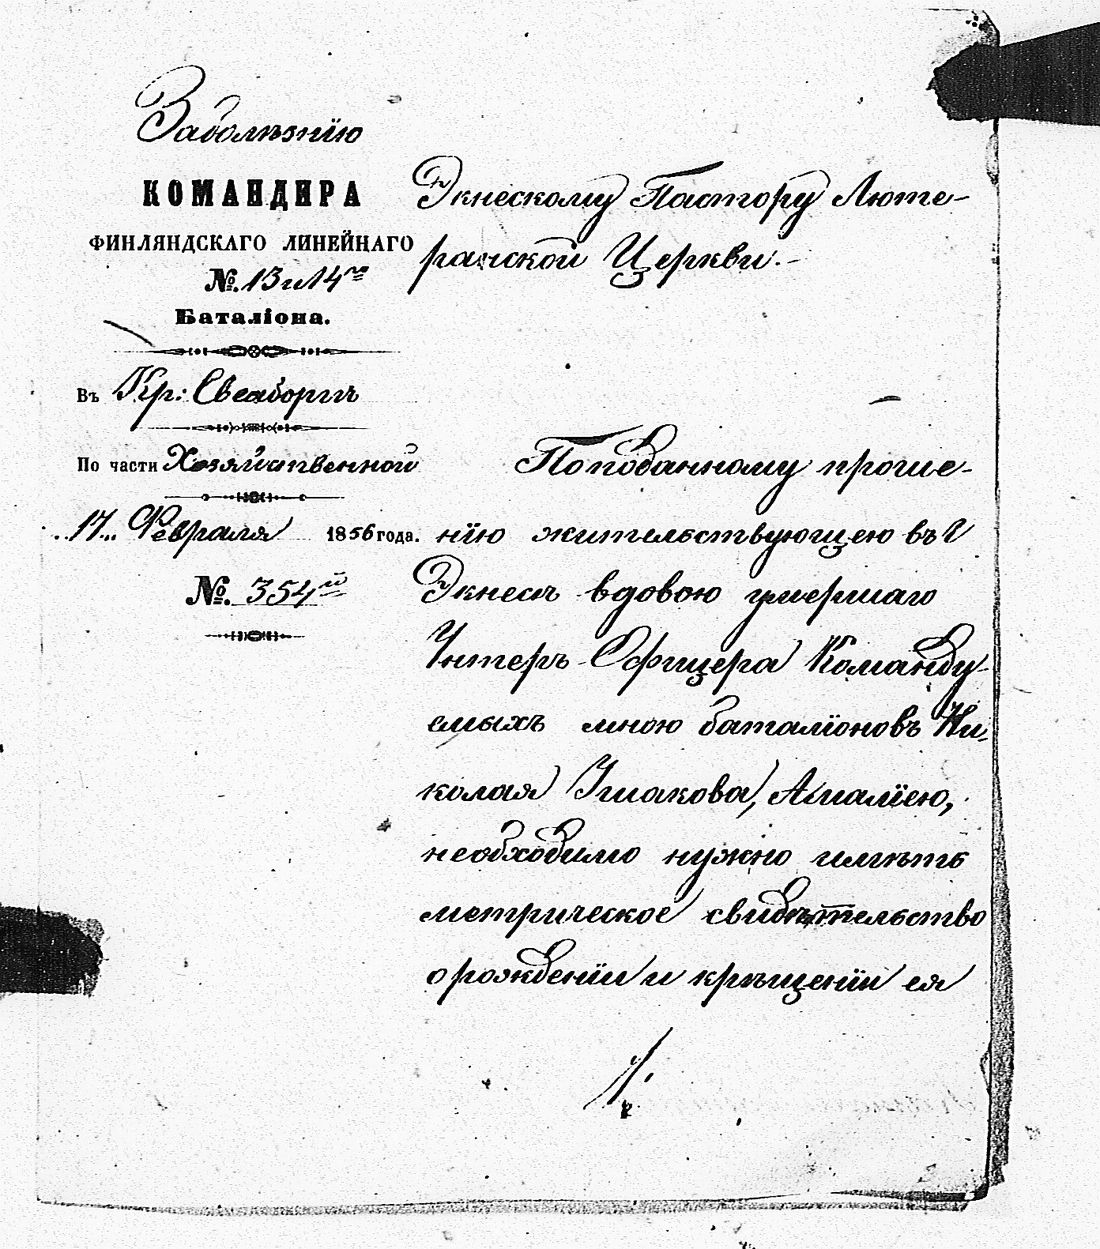 Заболѣзнію
КОМАНДИРА
ФИНЛЯНДСКАГО ЛИНЕЙНАГО
№. 13 и 14го
Баталіона.
Въ Кр: Свеаборгѣ
По части Хозяйственной
17. Февраля 1856 года.
№. 354й
Экнескому Пастору Люте-
ранской Церкви.
По поданному проше-
нію жительствующею въ г
Экнесѣ вдовою умершаго
Унтеръ Офицера Команду-
емыхъ мною баталіоновъ Ни-
колая Ушакова, Амаліею,
необходимо нужно имѣть
метрическое свидѣтельство
о рожденіи и крѣщеніи ея